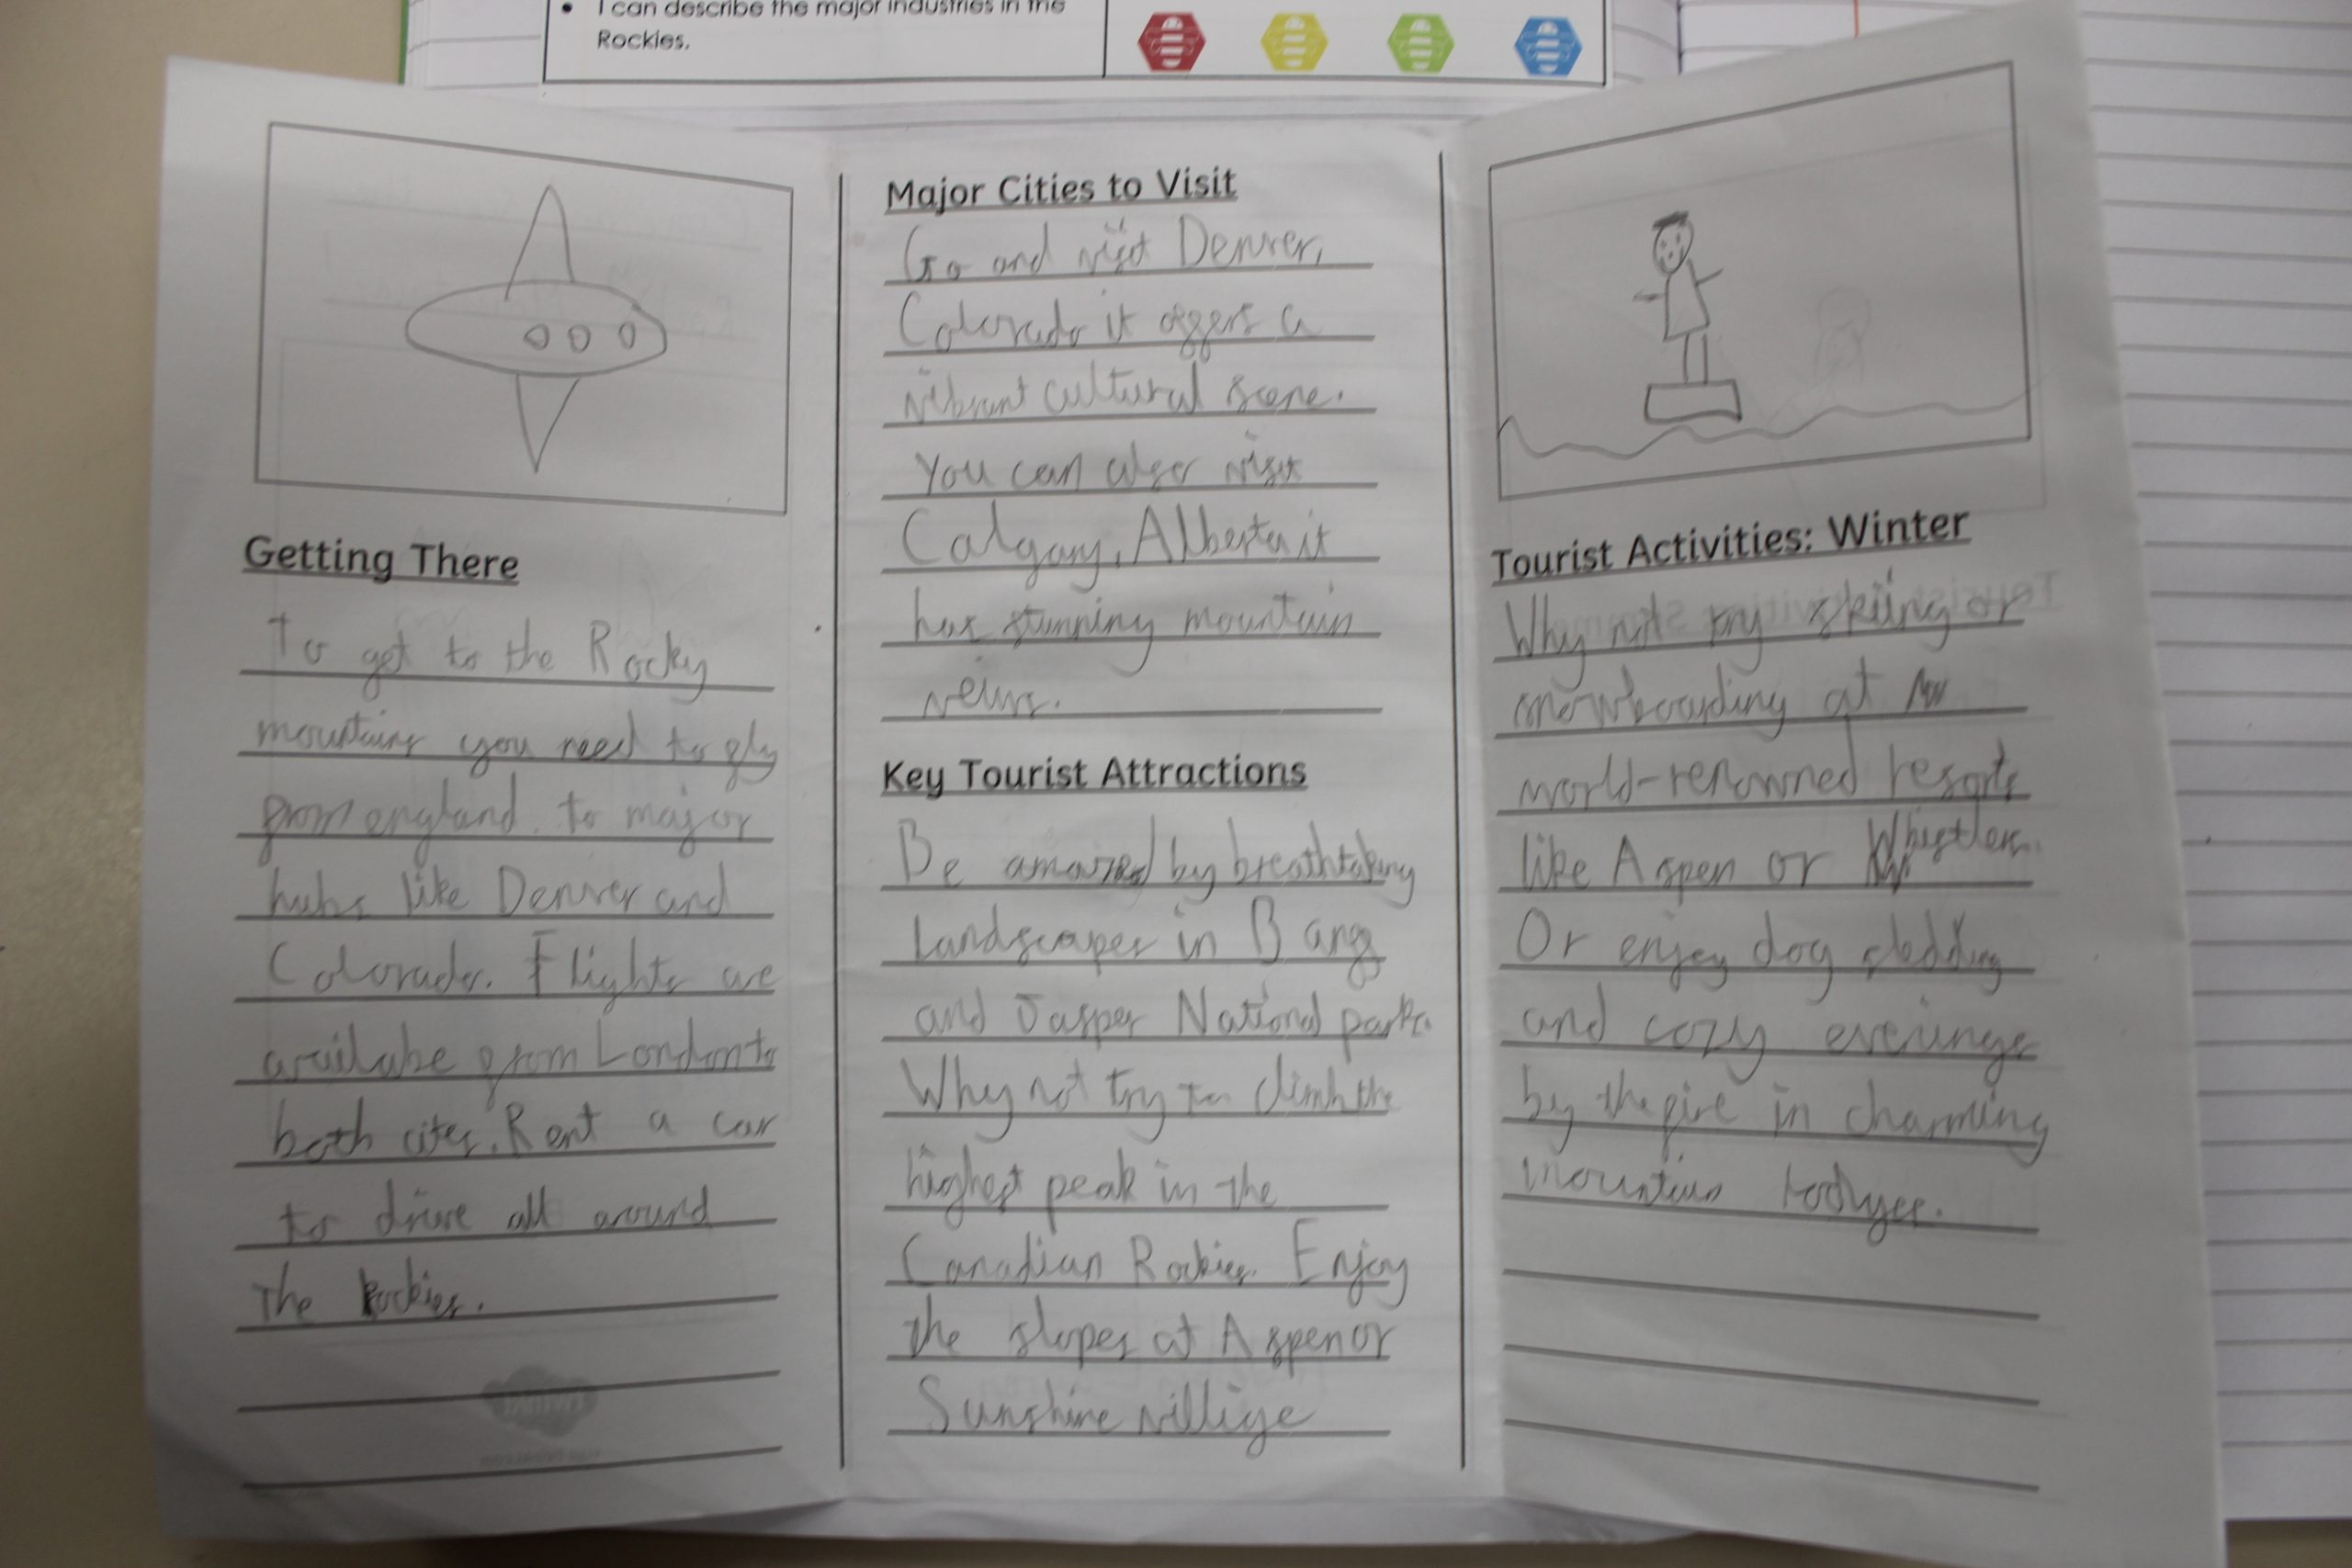 I can describe the major industries in the
Rockies.
Getting There
To get to the Rocky
mountains you need to fly
from england to major
hubs like Denver and
Colorado. Flights are
availabe from London to
both cites. Rent a car
to drive all around
the Rockies.
Major Cities to Visit
Go and visit Denver,
Colorado it offers a
vibrant cultural scene.
You can also visit
Calgary, Alberta it
has stunning mountain
veiws.
Key Tourist Attractions
Be amazed by breathtaking
Landscapes in Banff
and Jasper National parks.
Why not try to climb the
highest peak in the
Canadian Rockies. Enjoy
the slopes at Aspen or
Sunshine villige
Tourist Activities: Winter
Why not try skiing or
snowboarding at
world-renowned resorts
like Aspen or Whistler.
Or enjoy dog sledding
and cozy evenings
by the fire in charming
mountain